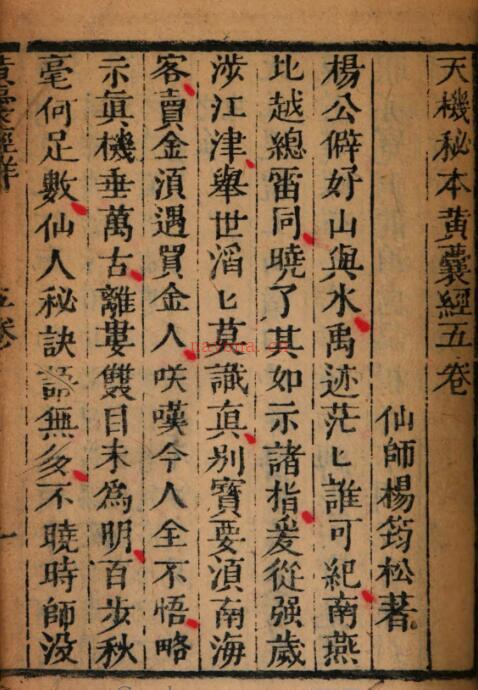 天機秘本黄囊經五卷
仙師楊筠松著
楊公僻好山與水禹迹茫匕誰可紀南燕
北越總雷同曉了其如示諸指爰從强歲
涉江津舉世滔匕莫識眞别寳要湏南海
客賣金湏遇買金人咲嘆今人全不悟略
示眞機垂萬古離婁雙目未爲明百步秋
毫何足數仙人秘訣語無多不曉時師没
五卷
一